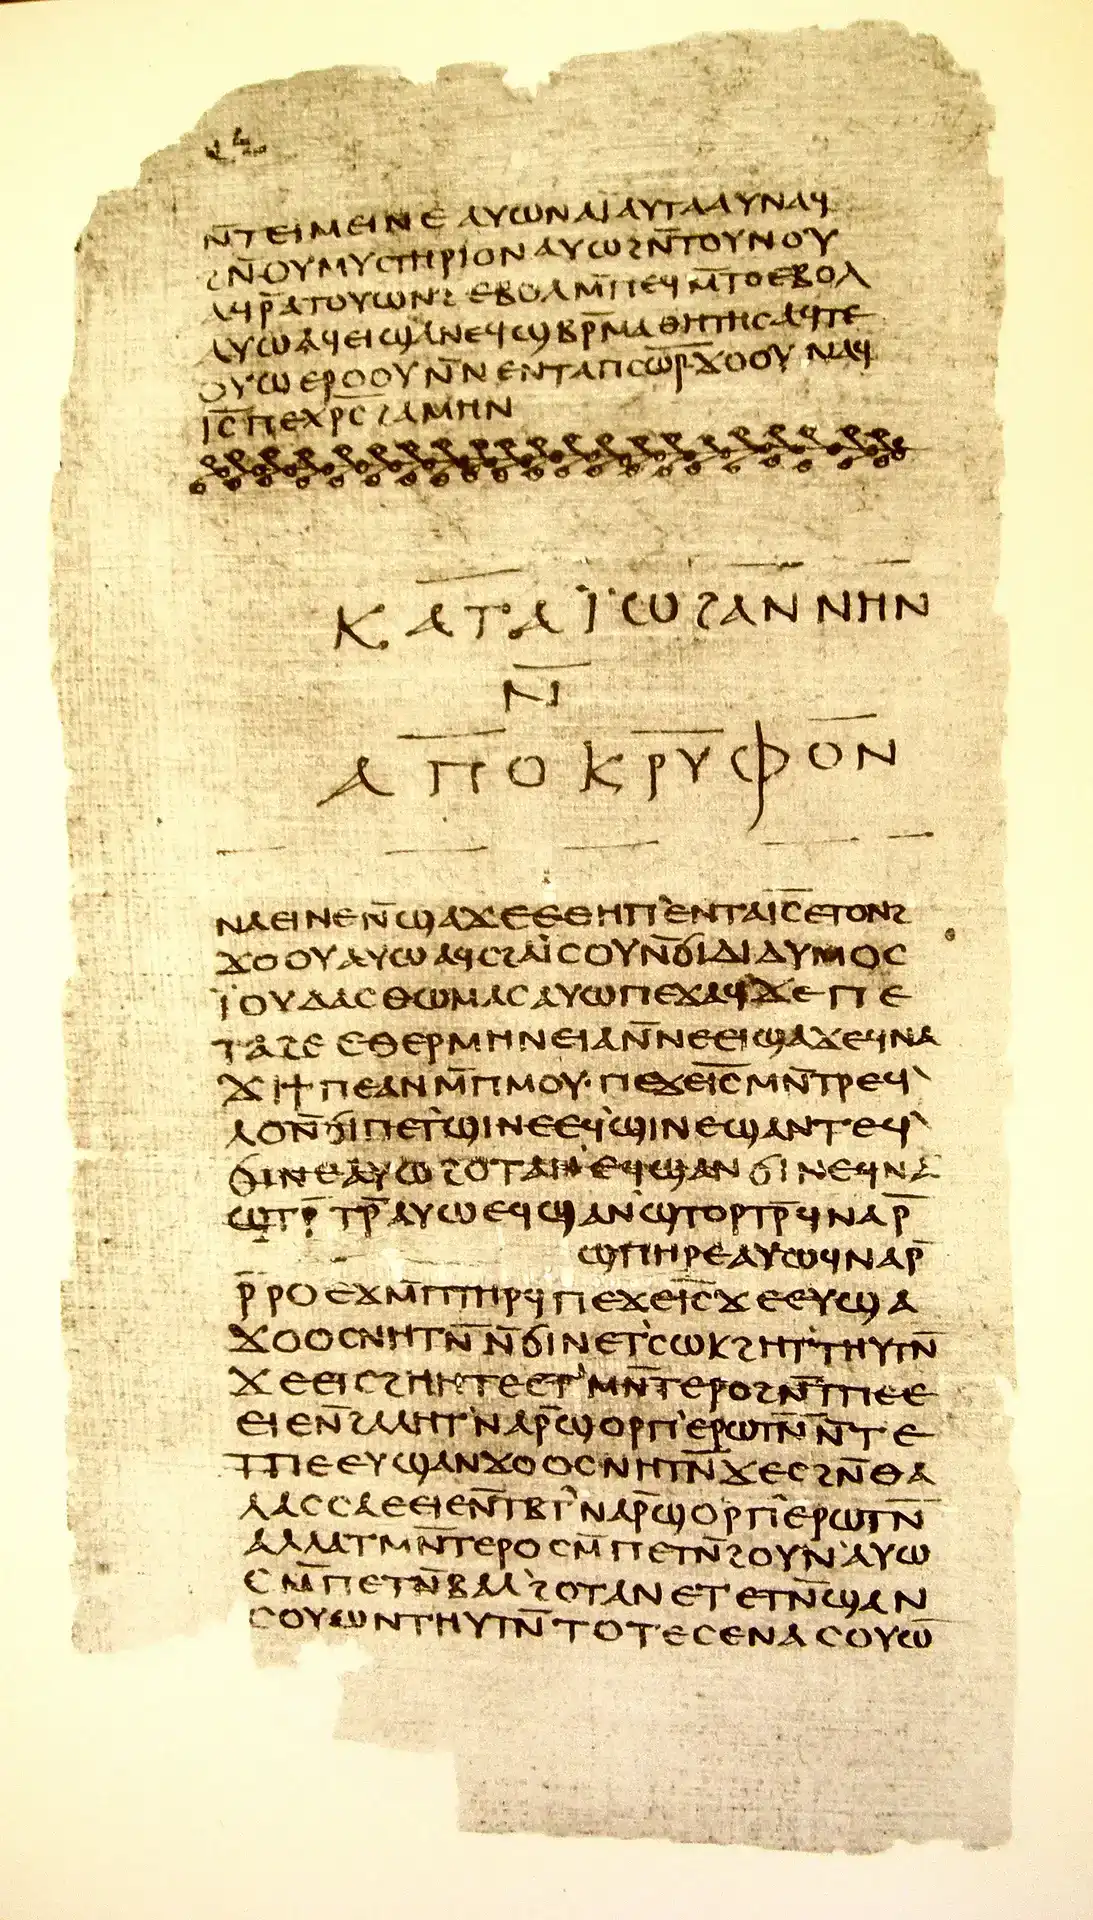 ⲛ̄ⲧⲉⲓⲙⲉⲓⲛⲉ ⲁⲩⲱ ⲛⲁⲓ̈ ⲁⲩⲧⲁⲁⲩ ⲛⲁϥ
ϩⲛ̄ ⲟⲩⲙⲩⲥⲧⲏⲣⲓⲟⲛ ⲁⲩⲱ ϩⲛ̄ ⲧⲟⲩⲛⲟⲩ
ⲁϥⲣ̄ ⲁⲧⲟⲩⲱⲛϩ ⲉⲃⲟⲗ ⲙ̄ⲡⲉϥⲙ̄ⲧⲟ ⲉⲃⲟⲗ
ⲁⲩⲱ ⲁϥⲉⲓ ϣⲁ ⲛⲉϥϣⲃⲣ̄ⲙⲁⲑⲏⲧⲏⲥ ⲁϥⲧⲉ
ⲟⲩⲱ ⲉⲣⲟⲟⲩ ⲛ̄ⲛⲉⲛⲧⲁ ⲡⲥⲱⲣ̄ ϫⲟⲟⲩ ⲛⲁϥ
ⲓ̅ⲥ̅ ⲡⲉⲭⲣ̅ⲥ̅ ϩⲁⲙⲏⲛ
ⲕⲁⲧⲁ ⲓ̈ⲱϩⲁⲛⲛⲏⲛ
ⲛ̄
ⲁⲡⲟⲕⲣⲩⲫⲟⲛ
ⲛⲁⲉⲓ ⲛⲉ ⲛ̄ϣⲁϫⲉ ⲉⲑⲏⲡ ⲉⲛⲧⲁ ⲓ̅ⲥ̅ ⲉⲧⲟⲛϩ
ϫⲟⲟⲩ ⲁⲩⲱ ⲁϥⲥϩⲁⲓ̈ⲥⲟⲩ ⲛ̄ϭⲓ ⲇⲓⲇⲩⲙⲟⲥ
ⲓ̈ⲟⲩⲇⲁⲥ ⲑⲱⲙⲁⲥ ⲁⲩⲱ ⲡⲉϫⲁϥ ϫⲉ ⲡⲉ
ⲧⲁϩⲉ ⲉⲑⲉⲣⲙⲏⲛⲉⲓⲁ ⲛ̄ⲛⲉⲉⲓϣⲁϫⲉ ϥⲛⲁ
ϫⲓ ϯⲡⲉ ⲁⲛ ⲙ̄ⲡⲙⲟⲩ· ⲡⲉϫⲉ ⲓ̅ⲥ̅ ⲙⲛ̄ⲧⲣⲉϥ
ⲗⲟ ⲛ̄ϭⲓ ⲡⲉⲧϣⲓⲛⲉ ⲉϥϣⲓⲛⲉ ϣⲁⲛⲧⲉϥ
ϭⲓⲛⲉ ⲁⲩⲱ ϩⲟⲧⲁⲛ ⲉϥϣⲁⲛϭⲓⲛⲉ ϥⲛⲁ
ϣⲧⲣ̄ⲧⲣ̄ ⲁⲩⲱ ⲉϥϣⲁⲛϣⲧⲟⲣⲧⲣ̄ ϥⲛⲁⲣ̄
ϣⲡⲏⲣⲉ ⲁⲩⲱ ϥⲛⲁⲣ̄
ⲣ̄ⲣⲟ ⲉϫⲙ̄ ⲡⲧⲏⲣϥ ⲡⲉϫⲉ ⲓ̅ⲥ̅ ϫⲉ ⲉⲩϣⲁ
ϫⲟⲟⲥ ⲛⲏⲧⲛ̄ ⲛ̄ϭⲓ ⲛⲉⲧⲥⲱⲕ ϩⲏⲧ ⲧⲏⲩⲧⲛ̄
ϫⲉ ⲉⲓⲥϩⲏⲏⲧⲉ ⲉⲧⲙⲛ̄ⲧⲉⲣⲟ ϩⲛ̄ ⲧⲡⲉ ⲉ
ⲉⲓⲉ ⲛ̄ϩⲁⲗⲏⲧ ⲛⲁⲣ̄ϣⲟⲣⲡ ⲉⲣⲱⲧⲛ̄ ⲛ̄ⲧⲉ
ⲧⲡⲉ ⲉⲩϣⲁⲛϫⲟⲟⲥ ⲛⲏⲧⲛ̄ ϫⲉ ⲥϩⲛ̄ ⲑⲁ
ⲗⲁⲥⲥⲁ ⲉⲉⲓⲉ ⲛ̄ⲧⲃⲧ ⲛⲁⲣ̄ϣⲟⲣⲡ ⲉⲣⲱⲧⲛ̄
ⲁⲗⲗⲁ ⲧⲙⲛ̄ⲧⲉⲣⲟ ⲥⲙ̄ⲡⲉⲧⲛ̄ϩⲟⲩⲛ ⲁⲩⲱ
ⲥⲙ̄ⲡⲉⲧⲛ̄ⲃⲁⲗ ϩⲟⲧⲁⲛ ⲉⲧⲉⲧⲛ̄ϣⲁⲛ
ⲥⲟⲩⲱⲛ ⲧⲏⲩⲧⲛ̄ ⲧⲟⲧⲉ ⲥⲉⲛⲁⲥⲟⲩⲱ̄